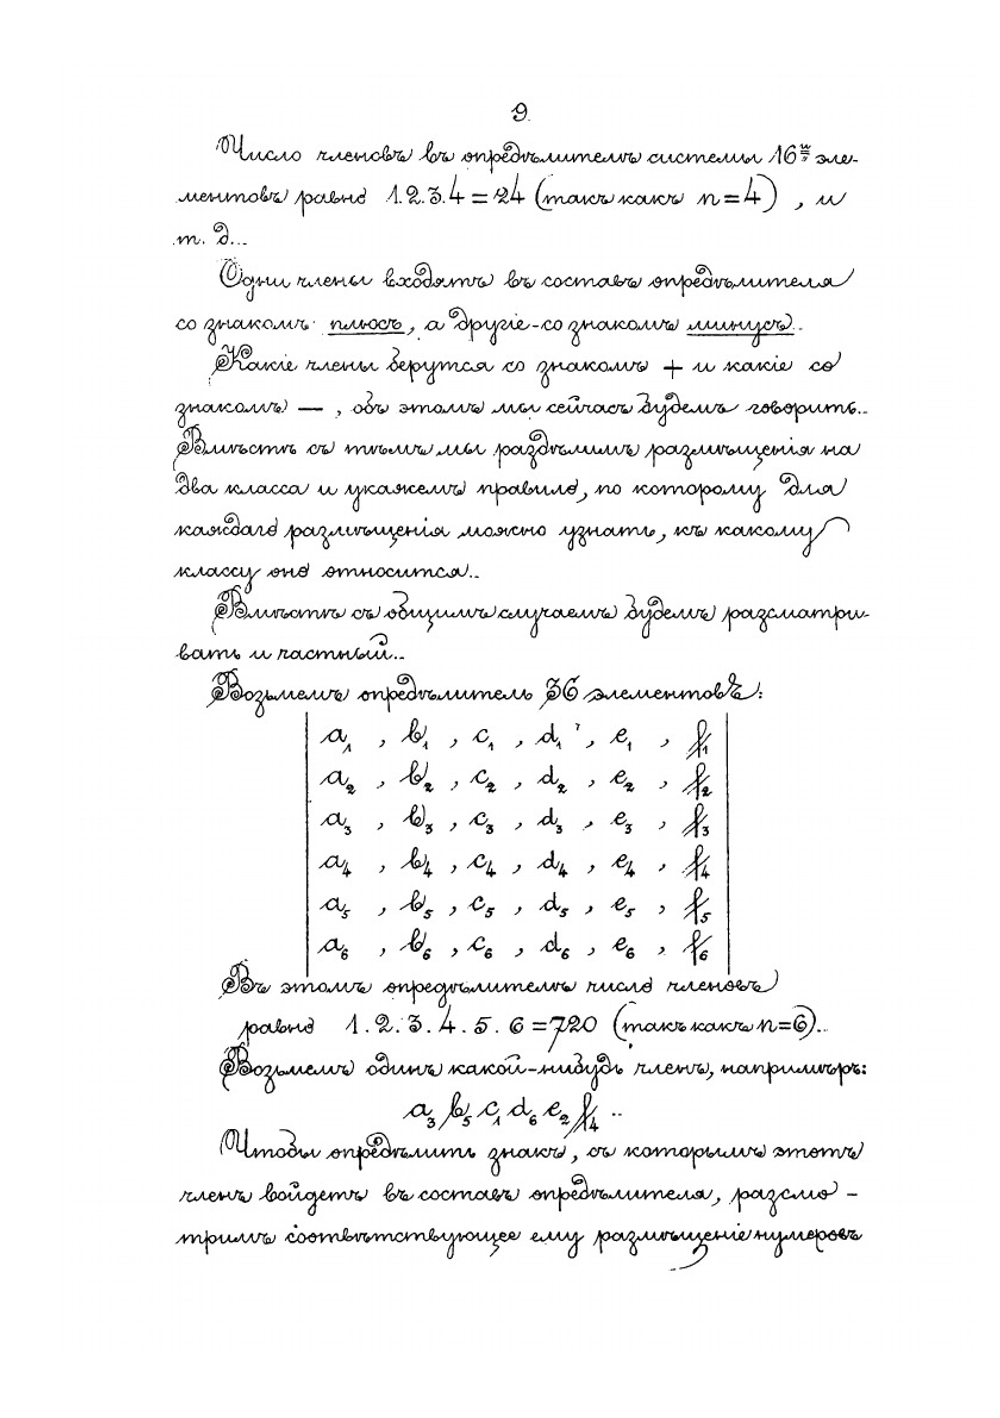 9.
Число членовъ въ опредѣлителѣ системы 16ᵗⁱ эле-
ментовъ равно 1.2.3.4 = 24 (такъ какъ n=4) , и
т. д...
Одни члены входятъ въ составъ опредѣлителя
со знакомъ плюсъ, а другіе-со знакомъ минусъ..
Какіе члены берутся со знакомъ + и какіе со
знакомъ — , объ этомъ мы сейчасъ будемъ говорить..
Вмѣстѣ съ тѣмъ мы раздѣлимъ размѣщенія на
два класса и укажемъ правило, по которому для
каждаго размѣщенія можно узнать, къ какому
классу оно относится..
Вмѣстѣ съ общимъ случаемъ будемъ разсматри-
вать и частный..
Возьмемъ опредѣлитель 36 элементовъ:
a₁ , b₁ , c₁ , d₁ , e₁ , f₁
a₂ , b₂ , c₂ , d₂ , e₂ , f₂
a₃ , b₃ , c₃ , d₃ , e₃ , f₃
a₄ , b₄ , c₄ , d₄ , e₄ , f₄
a₅ , b₅ , c₅ , d₅ , e₅ , f₅
a₆ , b₆ , c₆ , d₆ , e₆ , f₆
Въ этомъ опредѣлителѣ число членовъ
равно 1.2.3.4.5.6=720 (такъ какъ n=6)..
Возьмемъ одинъ какой-нибудь членъ, напримѣръ:
a₃ b₅ c₁ d₆ e₂ f₄ ..
Чтобы опредѣлить знакъ, съ которымъ этотъ
членъ войдетъ въ составъ опредѣлителя, разсмо-
тримъ соотвѣтствующее ему размѣщеніе нумеровъ